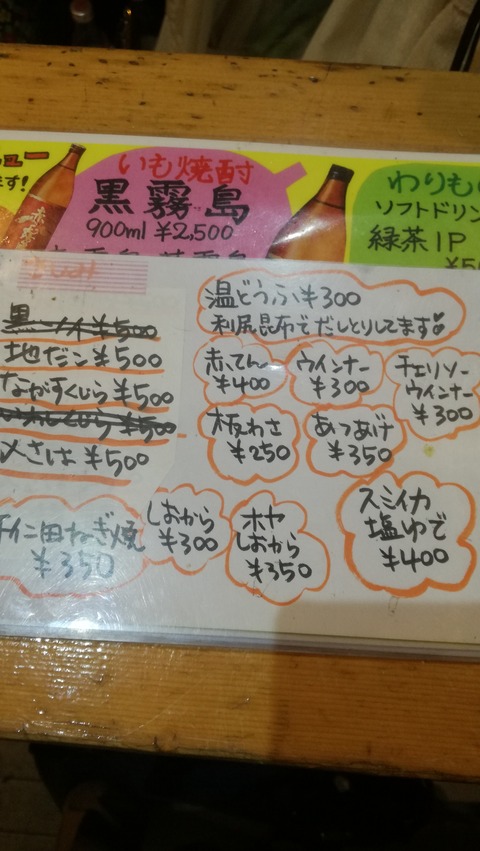 ュー
ます!
いも焼酎
黒霧島
900ml ¥2,500
わりも
ソフトドリン
緑茶1P
¥50
さしみ
¥500
地だこ ¥500
ながすくじら ¥500
¥500
〆さば ¥500
温どうふ ¥300
利尻昆布でだしとりしてます
赤てん
¥400
ウインナー
¥300
チョリソー
ウインナー
¥300
板わさ
¥250
あつあげ
¥350
田ねぎ焼
¥350
しおから
¥300
ホヤ
しおから
¥350
スミイカ
塩ゆで
¥400